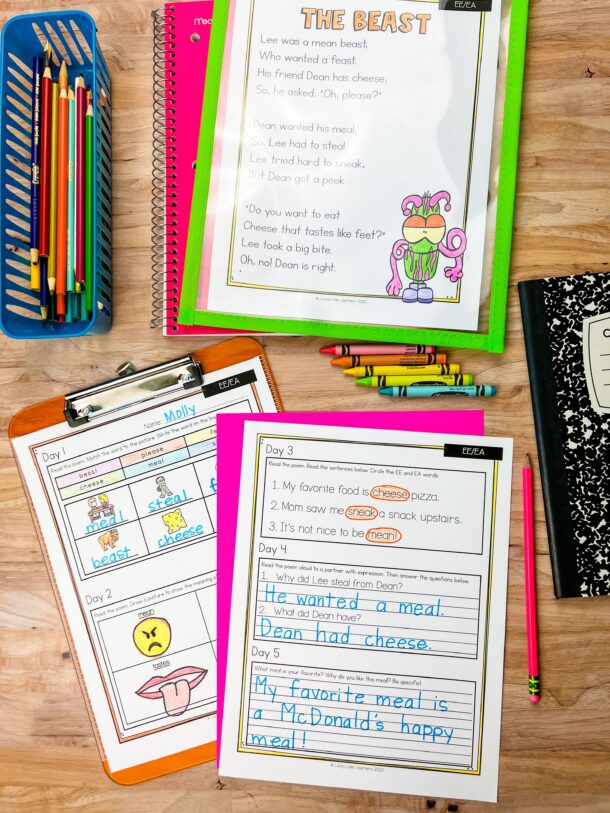 EE/EA
THE BEAST
Lee was a mean beast,
Who wanted a feast.
His friend Dean has cheese,
So, he asked, "Oh, please?"
Dean wanted his meal.
So, Lee had to steal.
Lee tried hard to sneak,
But Dean got a peek.
"Do you want to eat
Cheese that tastes like feet?"
Lee took a big bite.
Oh, no! Dean is right.
© Lucky Little Learners 2022
EE/EA
Name: Molly
Day 1
Read the poem. Match the word to the picture. Write the word on the line
beast please
cheese meal
meal steal
beast cheese
Day 2
Read the poem. Draw a picture to show the meaning
mean
tastes
EE/EA
Day 3
Read the poem. Read the sentences below. Circle the EE and EA words
1. My favorite food is cheese pizza.
2. Mom saw me sneak a snack upstairs.
3. It's not nice to be mean!
Day 4
Read the poem aloud to a partner with expression. Then answer the questions below
1. Why did Lee steal from Dean?
He wanted a meal.
2. What did Dean have?
Dean had cheese.
Day 5
What meal is your favorite? Why do you like this meal? Be specific!
My favorite meal is
a McDonald's happy
meal!
© Lucky Little Learners 2022